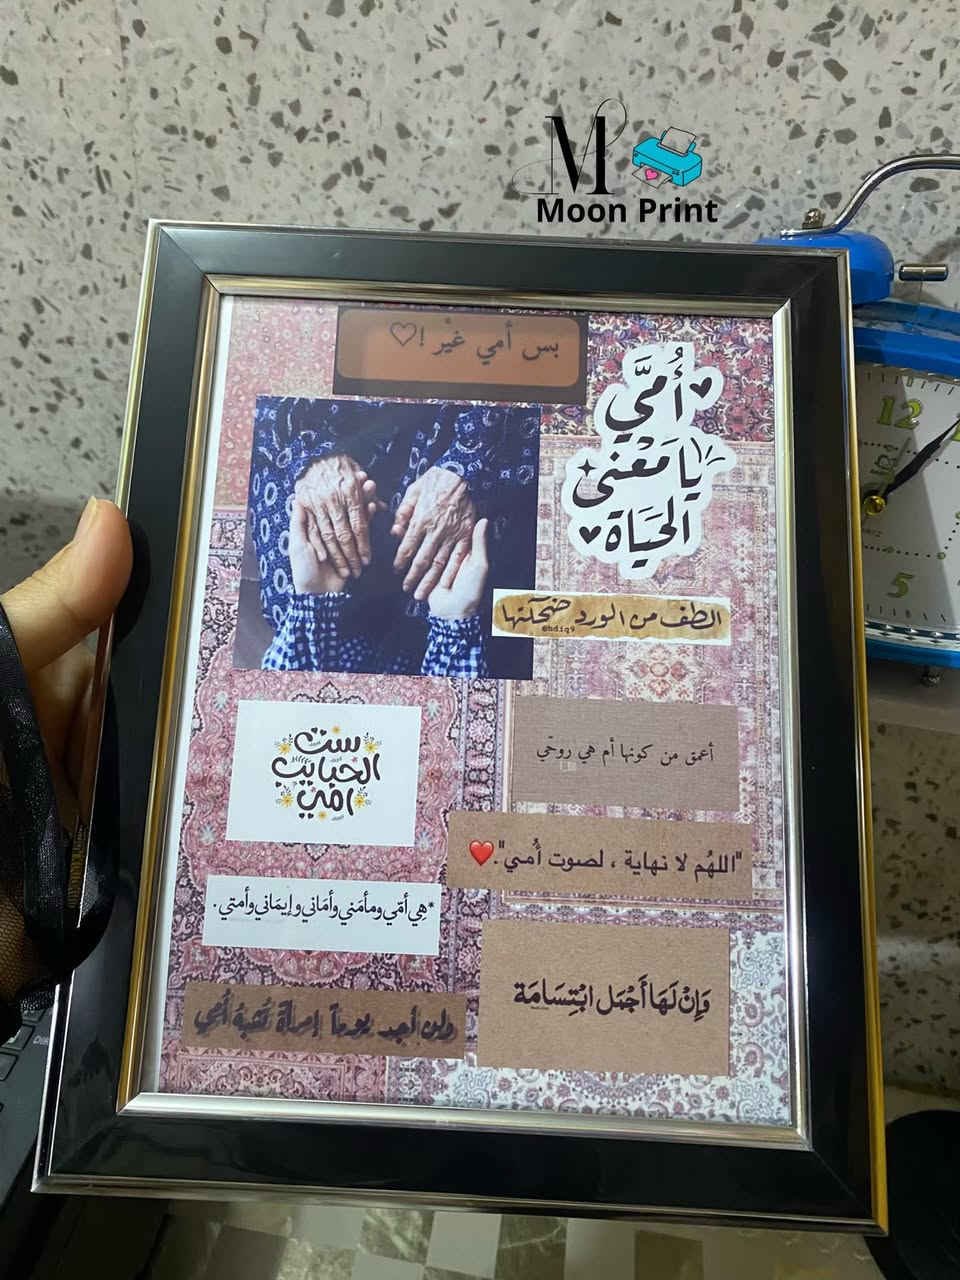 M
Moon Print
بس أمي غيْر !♡
أُمَّي
يا مَعْنى
الحَيَاة
الطف من الورد ضحكتها
@hdiq9
ست
الحبايب
أمي
أعمق من كونها أم هي روحي
"اللهُم لا نهاية ، لصوت أُمي".❤️
*هِي أمّي ومأمَني وأمَاني وإيمَاني وأمتي.
وَإِنْ لَهَا أَجْمَل ابْتِسَامَة
ولن أجد يوماً إمرأة تُشبهُ أُمي
12
5